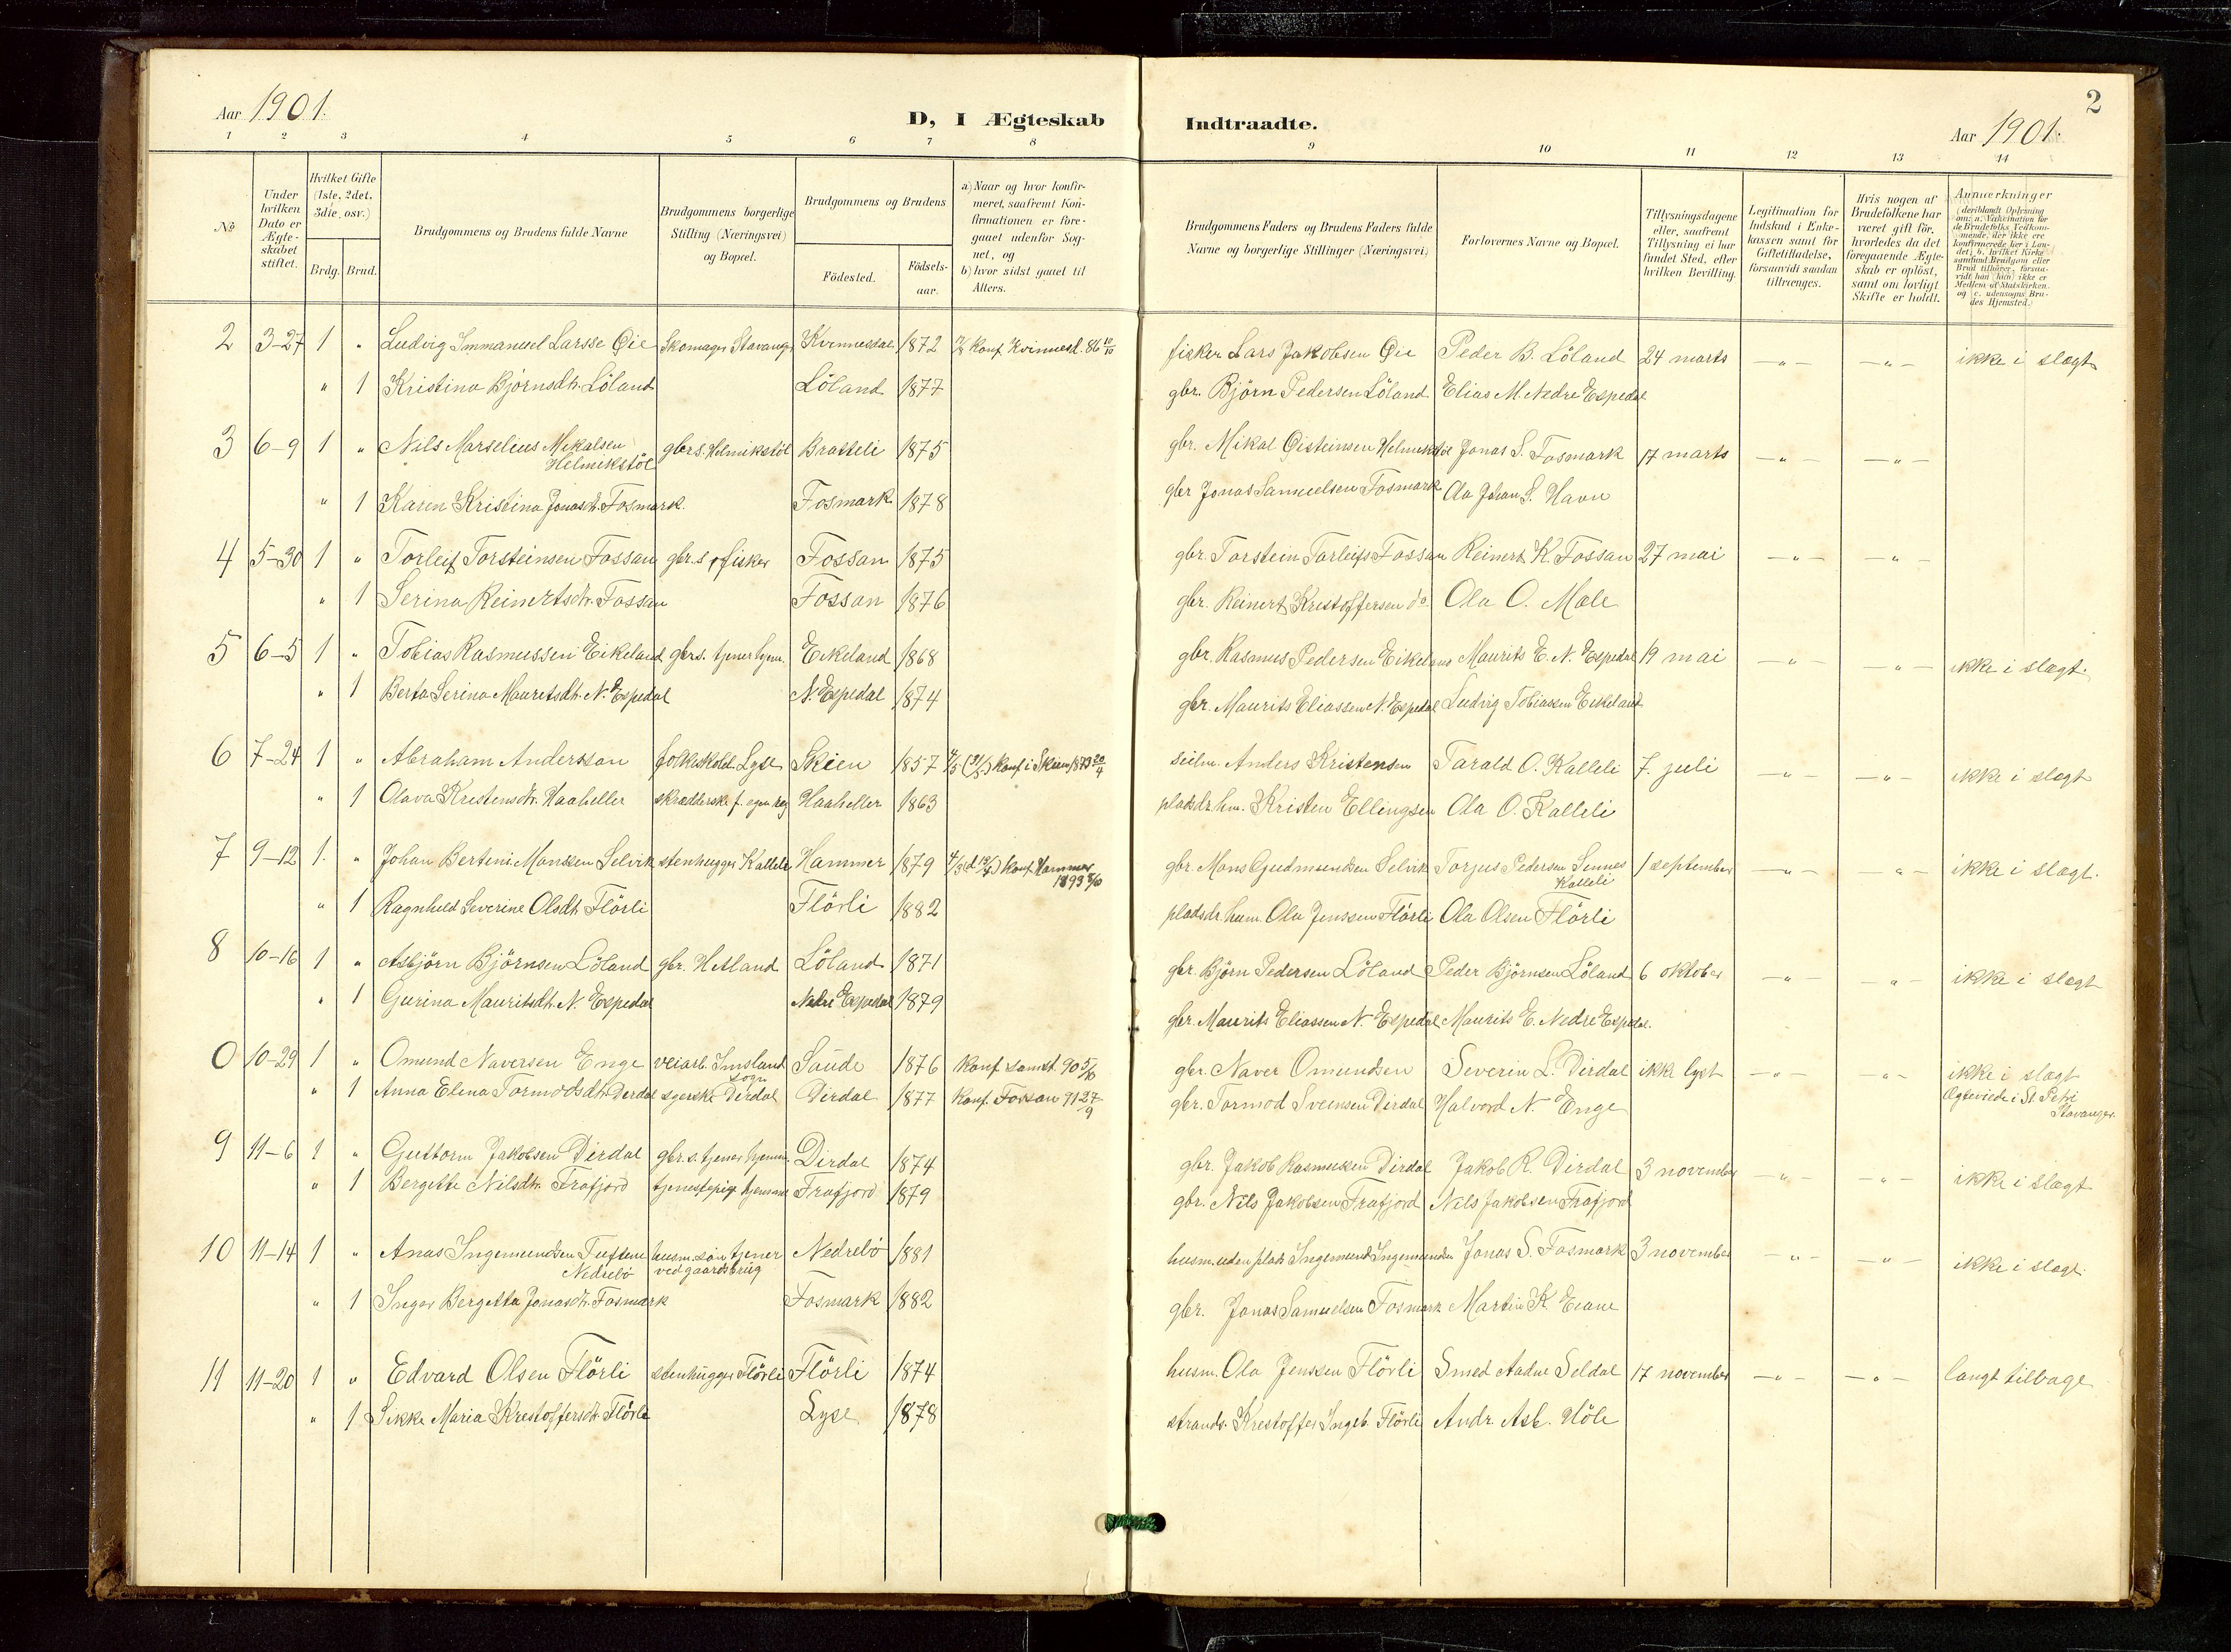 2
Aar 1901.
D, I Ægteskab Indtraadte.
Aar 1901.
1 2 3 4 5 6 7 8 9 10 11 12 13 14
№
Under hvilken Dato er Ægteskabet stiftet.
Hvilket Gifte (1ste, 2det, 3die, osv.)
Brdg. Brud.
Brudgommens og Brudens fulde Navne
Brudgommens borgerlige Stilling (Næringsvei) og Bopæl.
Brudgommens og Brudens
Födested.
Födselsaar.
a) Naar og hvor konfirmeret, saafremt Konfirmationen er foregaaet udenfor Sognet, og
b) hvor sidst gaaet til Alters.
Brudgommens Faders og Brudens Faders fulde Navne og borgerlige Stillinger (Næringsvei)
Forlovernes Navne og Bopæl.
Tillysningsdagene eller, saafremt Tillysning ei har fundet Sted, efter hvilken Bevilling.
Legitimation for Indskud i Enkekassen samt for Giftetilladelse, forsaavidt saadan tiltrænges.
Hvis nogen af Brudefolkene har været gift för, hvorledes da det foregaaende Ægteskab er oplöst, samt om lovligt Skifte er holdt.
Anmærkninger (deriblandt Oplysning om: a. Vaksination for de Brudefolks Vedkommende, der ikke ere konfirmerede her i Landet; b. hvilket Kirkesamfund Brudgom eller Brud tilhører, forsaavidt han (hun) ikke er Medlem af Statskirken. og c. udensogns Brudes Hjemsted.)
2 3-27 1 " Ludvig Immanuel Larsse Øie Skomager Stavanger Kvinnesdal 1872 Konf. Kvinnesd. 86 fisker Lars Jakobsen Øie Peder B. Löland 24 marts -"- -"- ikke i slægt
" 1 Kristina Bjørnsdtr. Löland Löland 1877 gbr. Björn Pedersen Löland Elias M. Nedre Espedal
3 6-9 1 " Nils Marselius Mikalsen Helmikstöl gbr.s. Helmikstöl Bratteli 1875 gbr. Mikal Øisteinsen Helmikstöl Jonas S. Fosmark 17 marts -"- -"-
" 1 Karen Kristina Jonasdt. Fosmark. Fosmark 1878 gbr Jonas Samuelsen Fosmark Ola Johan S. Havn
4 5-30 1 " Torleif Torsteinsen Fossan gbr.s. fisker Fossan 1875 gbr. Torstein Torleifs Fossan Reinert K. Fossan 27 mai -"- -"-
" 1 Serina Reinertsdtr. Fossan Fossan 1876 gbr. Reinert Kristoffersen do. Ola O. Mæle
5 6-5 1 " Tobias Rasmussen Eikeland gbr.s. tjener hjem. Eikeland 1868 gbr. Rasmus Pedersen Eikeland Maurits E. N. Espedal 19 mai -"- -"- ikke i slægt.
" 1 Berta Serina Mauritsdt. N. Espedal N. Espedal 1874 gbr. Maurits Eliassen N. Espedal Ludvig Tobiassen Eikeland
6 7-24 1 " Abraham Anderssan Lyse Skien 1857 konf. i Skien 1873 Anders Kristensen Tarald O. Kalleli 7. juli -"- -"- ikke i slægt
" 1 Olava Kristensdtr. Haaheller skrædderske f. egen reg Haaheller 1863 pladsbr. hm. Kristen Ellingsen Ola O. Kalleli
7 9-12 1. " Johan Bertini Monssen Selvik stenhugger Kalleli Hammer 1879 konf. Hammer 1893 gbr. Mons Gudmundsen Selvik Torjus Pedersen Sinnes Kalleli 1 september -"- -"- ikke i slægt.
" 1 Ragnhild Severine Olsdt. Flörli Flörli 1882 pladsbr. husm. Ola Jenssen Flörli Ola Olsen Flörli
8 10-16 1 " Asbjörn Björnsen Löland gbr. Hetland Löland 1871 gbr. Björn Pedersen Löland Peder Björnsen Löland 6 oktober -"- -"- ikke i slægt
" 1 Gurina Mauritsdt. N. Espedal Nedre Espedal 1879 gbr. Maurits Eliassen N. Espedal Maurits E. Nedre Espedal.
0 10-29 1 " Omund Naversen Enge veiarb. Imsland sogn Saude 1876 Konf. samst. 90 5/10 gbr. Naver Omundsen Severin L. Dirdal ikke lyst -"- -"- ikke i slægt
" 1 Anna Elena Tormodsdtr. Derdal syerske Dirdal Dirdal 1877 konf. Fossan 91 27/9 gbr. Tormod Sveinsen Dirdal Halvord N. Enge Ægteviede i St. Petri Stavanger.
9 11-6 1 " Guttorm Jakobsen Dirdal gbr.s. tjener hjemme Dirdal 1874 gbr. Jakob Rasmussen Dirdal Jakob R. Dirdal 3 november -"- -"- ikke i slægt
" 1 Bergette Nilsdtr. Frafjord tjenestepige hjemme Frafjord 1879 gbr. Nils Jakobsen Frafjord Nils Jakobsen Frafjord
10 11-14 1 " Anas Ingemundsen Tuftene Nedrebö husm. sön tjener ved gaardsbrug Nedrebö 1881 husm. uden plads Ingemund Ingemundsen Jonas S. Fosmark 3 november -"- -"- ikke i slægt.
" 1 Inger Bergetta Jonasdtr. Fosmark Fosmark 1882 gbr. Jonas Samuelsen Fosmark Martin K. Eiane
11 11-20 1 " Edvard Olsen Flörli stenhugger Flörli Flörli 1874 husm. Ola Jenssen Flörli Smed Aadne Seldal 17 november -"- -"- langt tilbage
" 1 Sikke Maria Krestoffersdt. Flörli Lyse 1878 strands. Krestoffer Ingeb. Flörli Andr. Asb. Höle